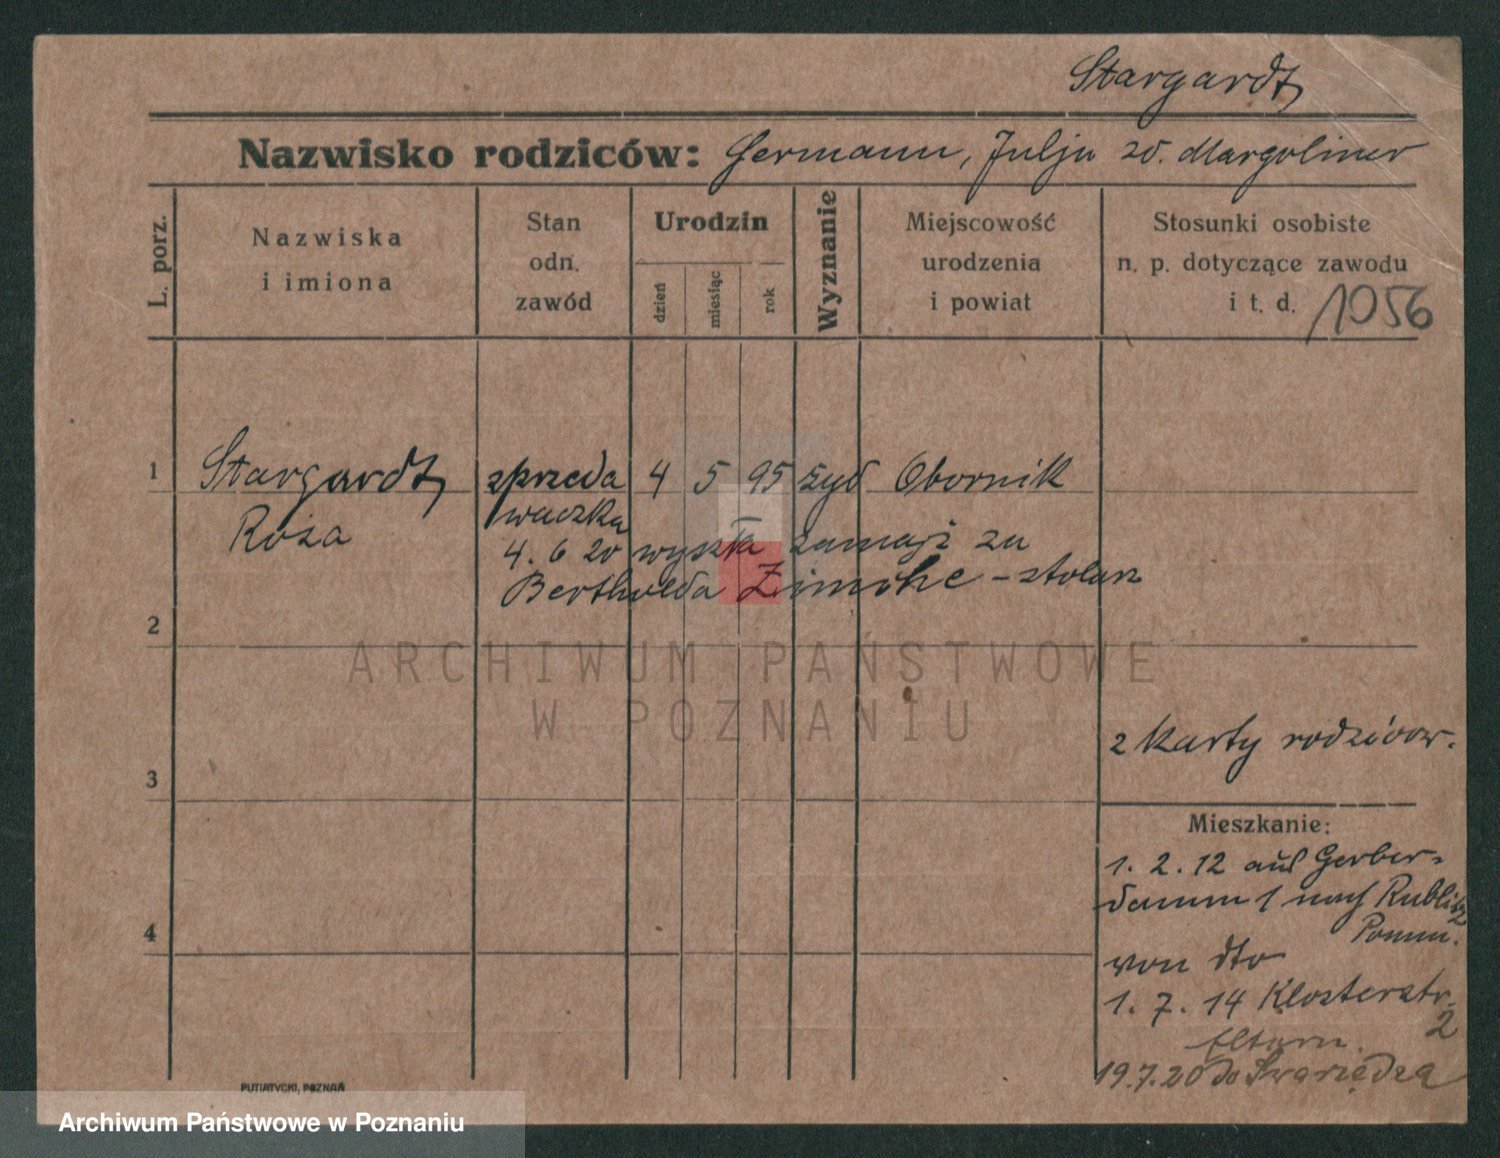 Stargardt
Nazwisko rodziców: Hermann, Julja zd. Margoliner
L. porz.
Nazwiska
i imiona
Stan
odn.
zawód
Urodzin
dzień
miesiąc
rok
Wyznanie
Miejscowość
urodzenia
i powiat
Stosunki osobiste
n. p. dotyczące zawodu
i t. d. 1056
1 Stargardt sprzeda 4 5 95 żyd Obornik
Róża waczka
4. 6 20 wyszła zamąż za
Bertholda - stolarz
2
ARCHIWUM PAŃSTWOWE
W POZNANIU
2 Karty rodziców.
3
Mieszkanie:
1. 2. 12 auf Gerber-
damm 1 nach
Pomm.
4
von dto
1. 7. 14 Klosterstr.
2
Eltern.
19.7.20 do Swarzędza
PUTIATYCKI, POZNAŃ
Archiwum Państwowe w Poznaniu